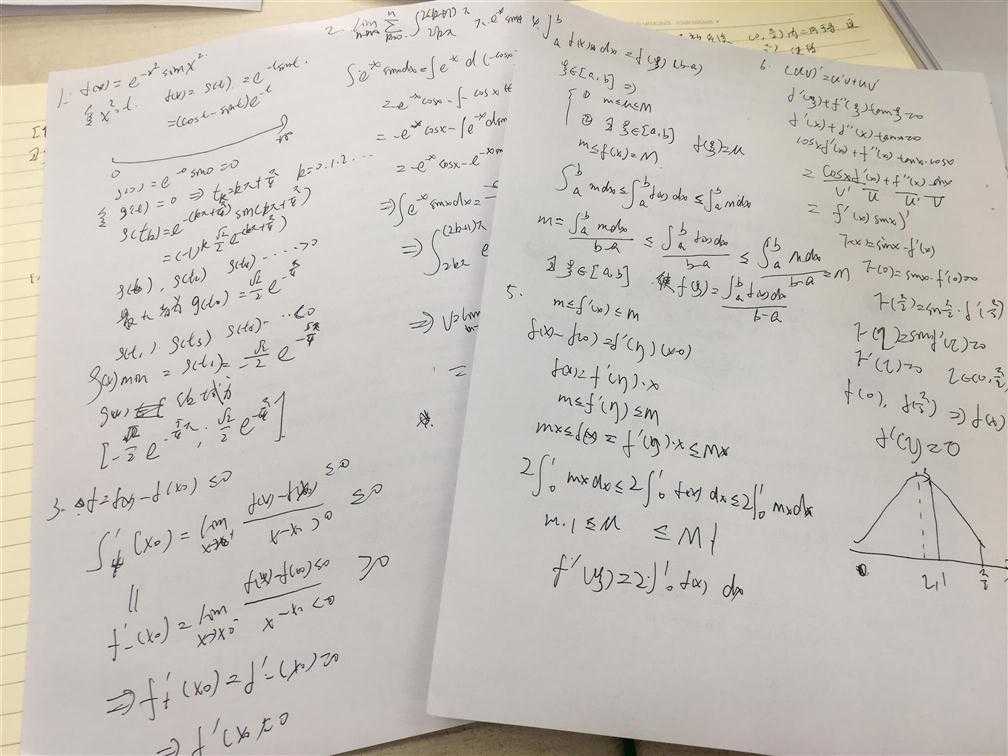 1. f(x) = e^{-x²} sin x².
令 x² = t. f(x) = g(t) = e^{-t} sin t.
= (cos t - sin t) e^{-t}
0
g(0) = e^{-0} sin 0 = 0
令 g'(t) = 0 ⇒ t_k = kπ + π/4 k = 0.1.2. ...
g(t_k) = e^{-(kπ+π/4)} sin(kπ + π/4)
= (-1)^k √2/2 e^{-(kπ+π/4)}
g(t_0), g(t_2) g(t_4) ... > 0
最大 为 g(t_0) = √2/2 e^{-π/4}
g(t_1) g(t_3) g(t_5) ... < 0
g(x) min = g(t_1) = -√2/2 e^{-5π/4}
[-√2/2 e^{-5/4 π}, √2/2 e^{-π/4}]
3. Δf = f(x) - f(x_0) ≤ 0
f'_+(x_0) = lim x→x_0^+ f(x) - f(x_0) ≤ 0 / x - x_0 > 0 ≤ 0
||
f'_-(x_0) = lim x→x_0^- f(x) - f(x_0) ≤ 0 / x - x_0 < 0 ≥ 0
⇒ f'_+(x_0) = f'_-(x_0) = 0
⇒ f'(x_0) = 0
2. lim n→∞ Σ^n k=0 ∫_{2kπ}^{(2k+1)π} e^{-x} sin x
∫ e^{-x} sin x dx = ∫ e^{-x} d(-cos x)
= -e^{-x} cos x - ∫ cos x
= -e^{-x} cos x - ∫ e^{-x} d sin
= -e^{-x} cos x - e^{-x} sin
⇒ ∫ e^{-x} sin x dx =
⇒ ∫_{2kπ}^{(2k+1)π} e
⇒ V = lim
=
4. ∫_a^b f(x) dx = f(ξ)(b-a)
ξ∈[a,b] ⇒
① m ≤ μ ≤ M
② ∃ ξ∈[a,b] f(ξ) = μ
m ≤ f(x) ≤ M
∫_a^b m dx ≤ ∫_a^b f(x) dx ≤ ∫_a^b M dx
m = ∫_a^b m dx / b-a ≤ ∫_a^b f(x) dx / b-a ≤ ∫_a^b M dx / b-a = M
∃ ξ∈[a,b] 使 f(ξ) = ∫_a^b f(x) dx / b-a
5.
m ≤ f'(x) ≤ M
f(x) - f(0) = f'(η)(x-0)
f(x) = f'(η)·x
m ≤ f'(η) ≤ M
mx ≤ f(x) = f'(η)·x ≤ Mx
2∫_0^1 mx dx ≤ 2∫_0^1 f(x) dx ≤ 2∫_0^1 Mx dx
m·1 ≤ μ ≤ M·1
f'(ξ) = 2·∫_0^1 f(x) dx
6. (uv)' = u'v + uv'
f'(ξ) + f''(ξ) tan ξ = 0
f'(x) + f''(x) tan x = 0
cos x f'(x) + f''(x) tan x · cos x
= cos x f'(x) + f''(x) sin x
v' u u' v
= (f'(x) sin x)'
F(x) = sin x · f'(x)
F(0) = sin 0 · f'(0) = 0
F(π/2) = sin π/2 · f'(π/2)
F(η) = sin η f'(η) = 0
F'(ζ) = 0 ζ∈(0, π/2)
f(0), f(π/2) ⇒ f(x)
f'(η) = 0
0 η π/2